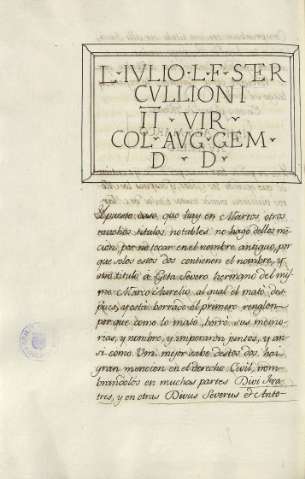 L. IVLIO. L. F. SER
CVLLIONI
II VIR
COL. AVG. GEM
D D
que hay en Martos, otros
muchos titulos notables no hago dellos men
cion por no tocar en el nombre antiguo, por
que solos estos dos contienen el nombre, y
este titulo à Geta Severo hermano del mis
mo Marco Aurelio al qual el mató, des
pues, y está borrado el primero renglon
por que como lo mató, borró sus memo
rias, y nombre, y imperaron juntos, y an
si como Vm. mejor sabe destos dos, hai
gran mencion en el derecho Civil, nom
brandolos en muchas partes Divi fra
tres, y en otras Divus Severus et Anto-